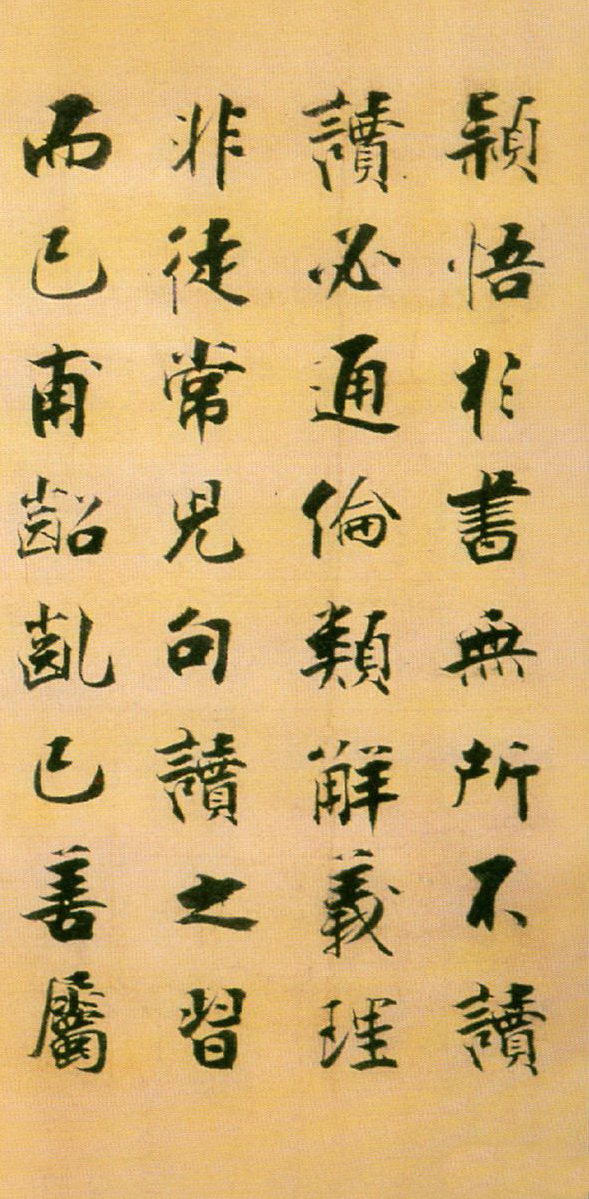 穎悟於書無所不讀
讀必通倫類解義理
非徒常兒句讀之習
而已甫齠亂已善屬